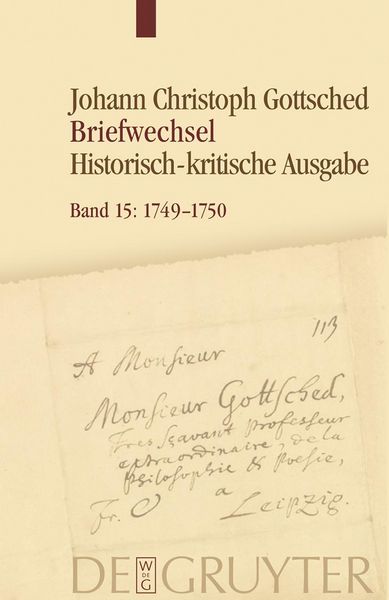 Johann Christoph Gottsched
Briefwechsel
Historisch-kritische Ausgabe
Band 15: 1749–1750
113
A Monsieur
Monsieur Gottsched,
Tres Sçavant Professeur
extraordinaire, de la
Philosophie & Poesie,
Fr. a
Leipzig.
DE GRUYTER
W
DE
G